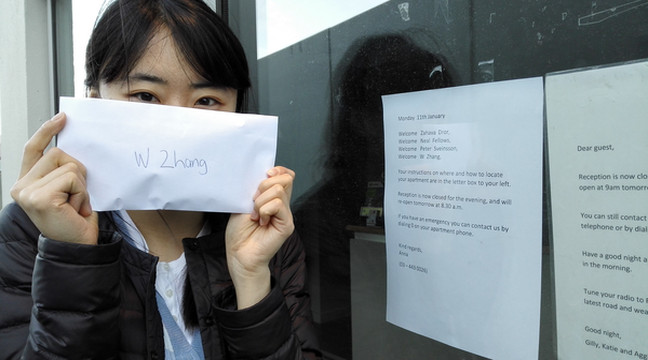 W Zhang
Monday 11th January
Welcome
Welcome Neal Fellows,
Welcome Peter Swainston,
Welcome W Zhang.
Your instructions on where and how to locate
your apartment are in the letter box to your left.
Reception is now closed for the evening, and will
re open tomorrow at 8.30 a.m.
If you have an emergency you can contact us by
dialing 0 on your apartment phone.
Kind regards,
Anna
Dear guest,
Reception is now
open at 9am
You can still contact
telephone or by
Have a good night
in the morning.
Tune your radio to
latest road and
Good night,
Gilly, Katie and